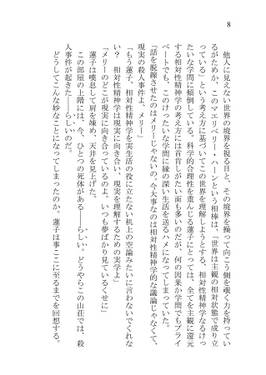 8
他人に見えない世界の境界を視る目と、その境界を操って向こう側を覗く力を持ってい
るがためか、このマエリベリー・ハーンという相棒は、“世界は主観の相対状態で成り立
っている”という考え方に基づいてこの世界を理解しようとする。相対性精神学なるけっ
たいな学問に傾倒しているのもそのためだ。科学的合理性を重んじる蓮子にとっては、全てを主観に還元
する相対性精神学の考え方には首肯しがたい面も多いのだが、何の因果か学問でもプライ
ベートでも、この傾きたいな学問に縁の深い生活を送るハメになってしまっていた。
「話を脱線させたのはメリーじゃないの。今大事なのは相対性精神学的な議論じゃなくて、
現実の殺人事件よ」
「もう蓮子、相対性精神学を実生活の役に立たない机上の空論みたいに言わないでくれな
い？ 相対性精神学は現実に向き合い、現実を理解するための実学よ」
「メリーのどこが現実に向き合っているのよ。いつも夢ばかり見ているくせに」
蓮子は嘆息して肩を竦め、天井を見上げた。
この部屋の上階には、今、ひとつの死体がある――らしい。どうやらこの山荘では、殺
人事件が起きた――らしいのだ。
どうしてこんな妙なことになってしまったのか、蓮子は事ここに至るまでを回想する。